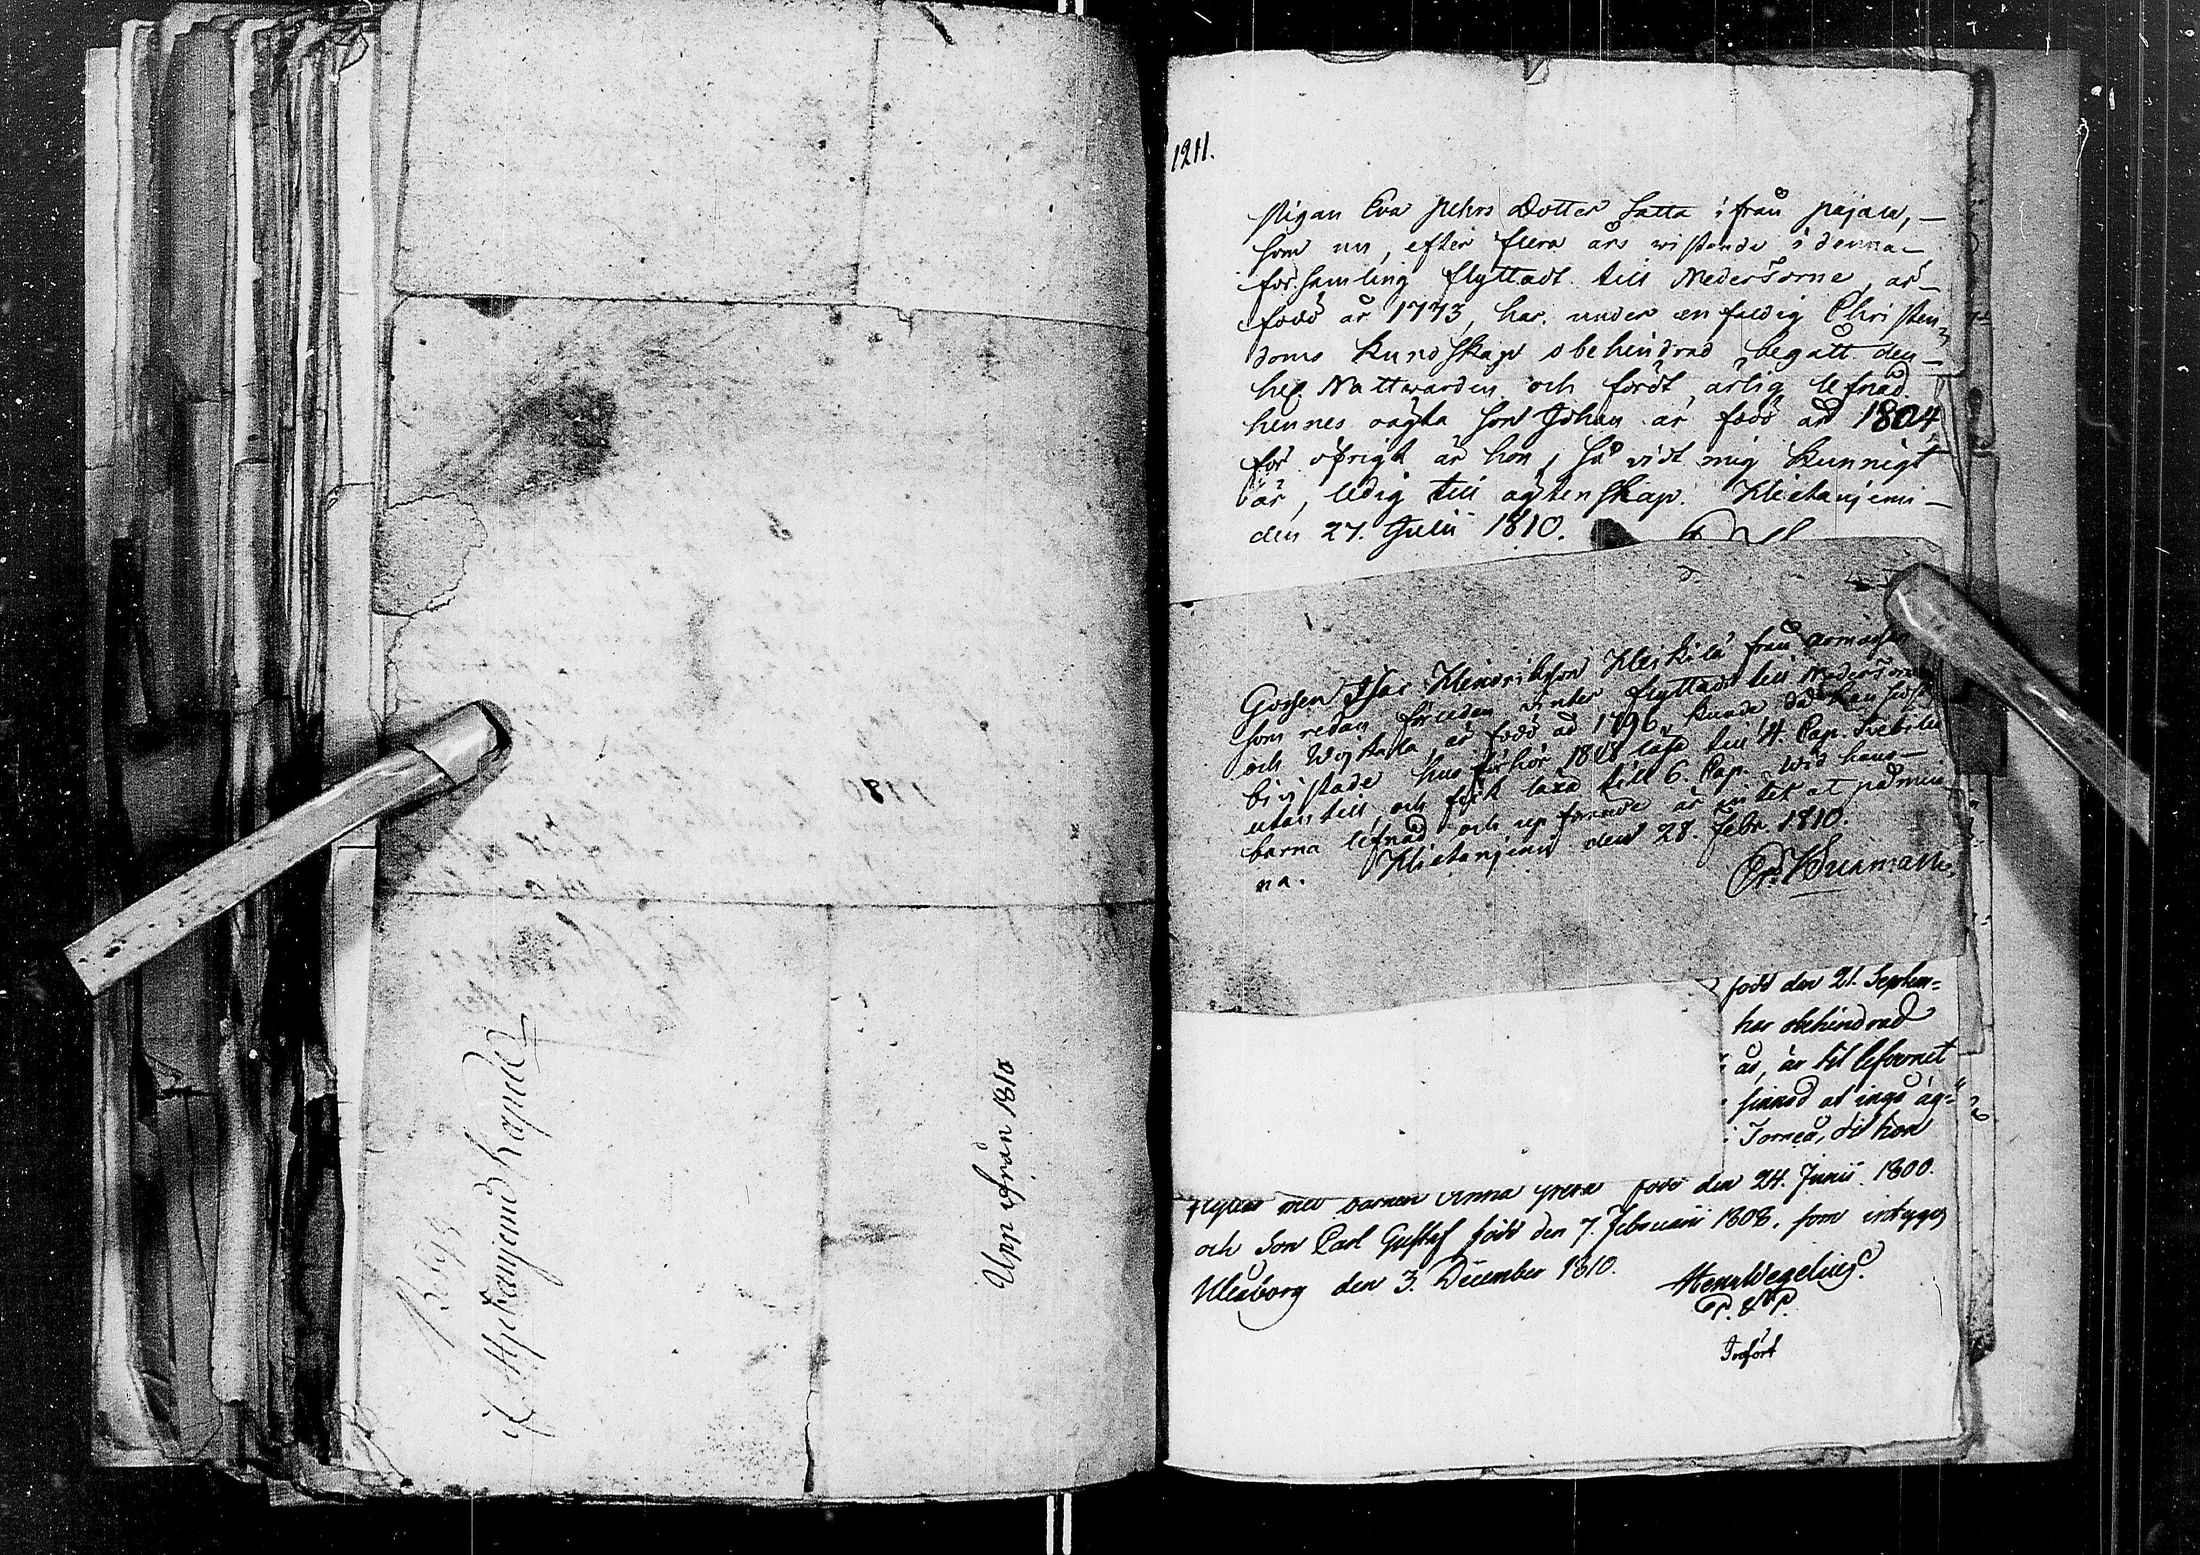 1810
Betyg
if Hjetanjemi Kapell
Upp ifrån 1810
1211.
Pigan Eva Pehrs Dotter Satta ifrån Pajala,
som nu, efter flera års vistande i denna
församling flyttadt till NederTorne, är
född år 1773, har under enfaldig Christen-
doms kundskap obehindrad begått den
hel. Nattwarden och fördt ärlig lefnad
hennes oägta son Johan är född år 1804
för öfrigt är hon, så vidt mig kunnigt
är, ledig till ägtenskap. Hietanjemi
den 27. Julii 1810.
Gossen Isac Hendrikson Heikilä från
som redan förleden vinter flyttadt till NederTorne
och Wojakala, är född år 1796, kunde då han sidst
bivistade husförhör 1808 läsa till 4. Cap. Svebilii
utantill, och fick läxa till 6. Cap. Wid hans
barna lefnad och upförande är intet at påmin-
na. Hietanjemi den 28. Febr. 1810.
född den 21. Septem-
har obehindrad
ås, är til lefvernet
hinnad at ingå äg-
i Torneå, dit hon
flyttar med barnen Anna Greta född den 24. Junii 1800.
och Son Carl Gustaf född den 7. Februarii 1808, som intygas
Uleåborg den 3. December 1810.
Hen: Wegelius.
P. & P.
Infört